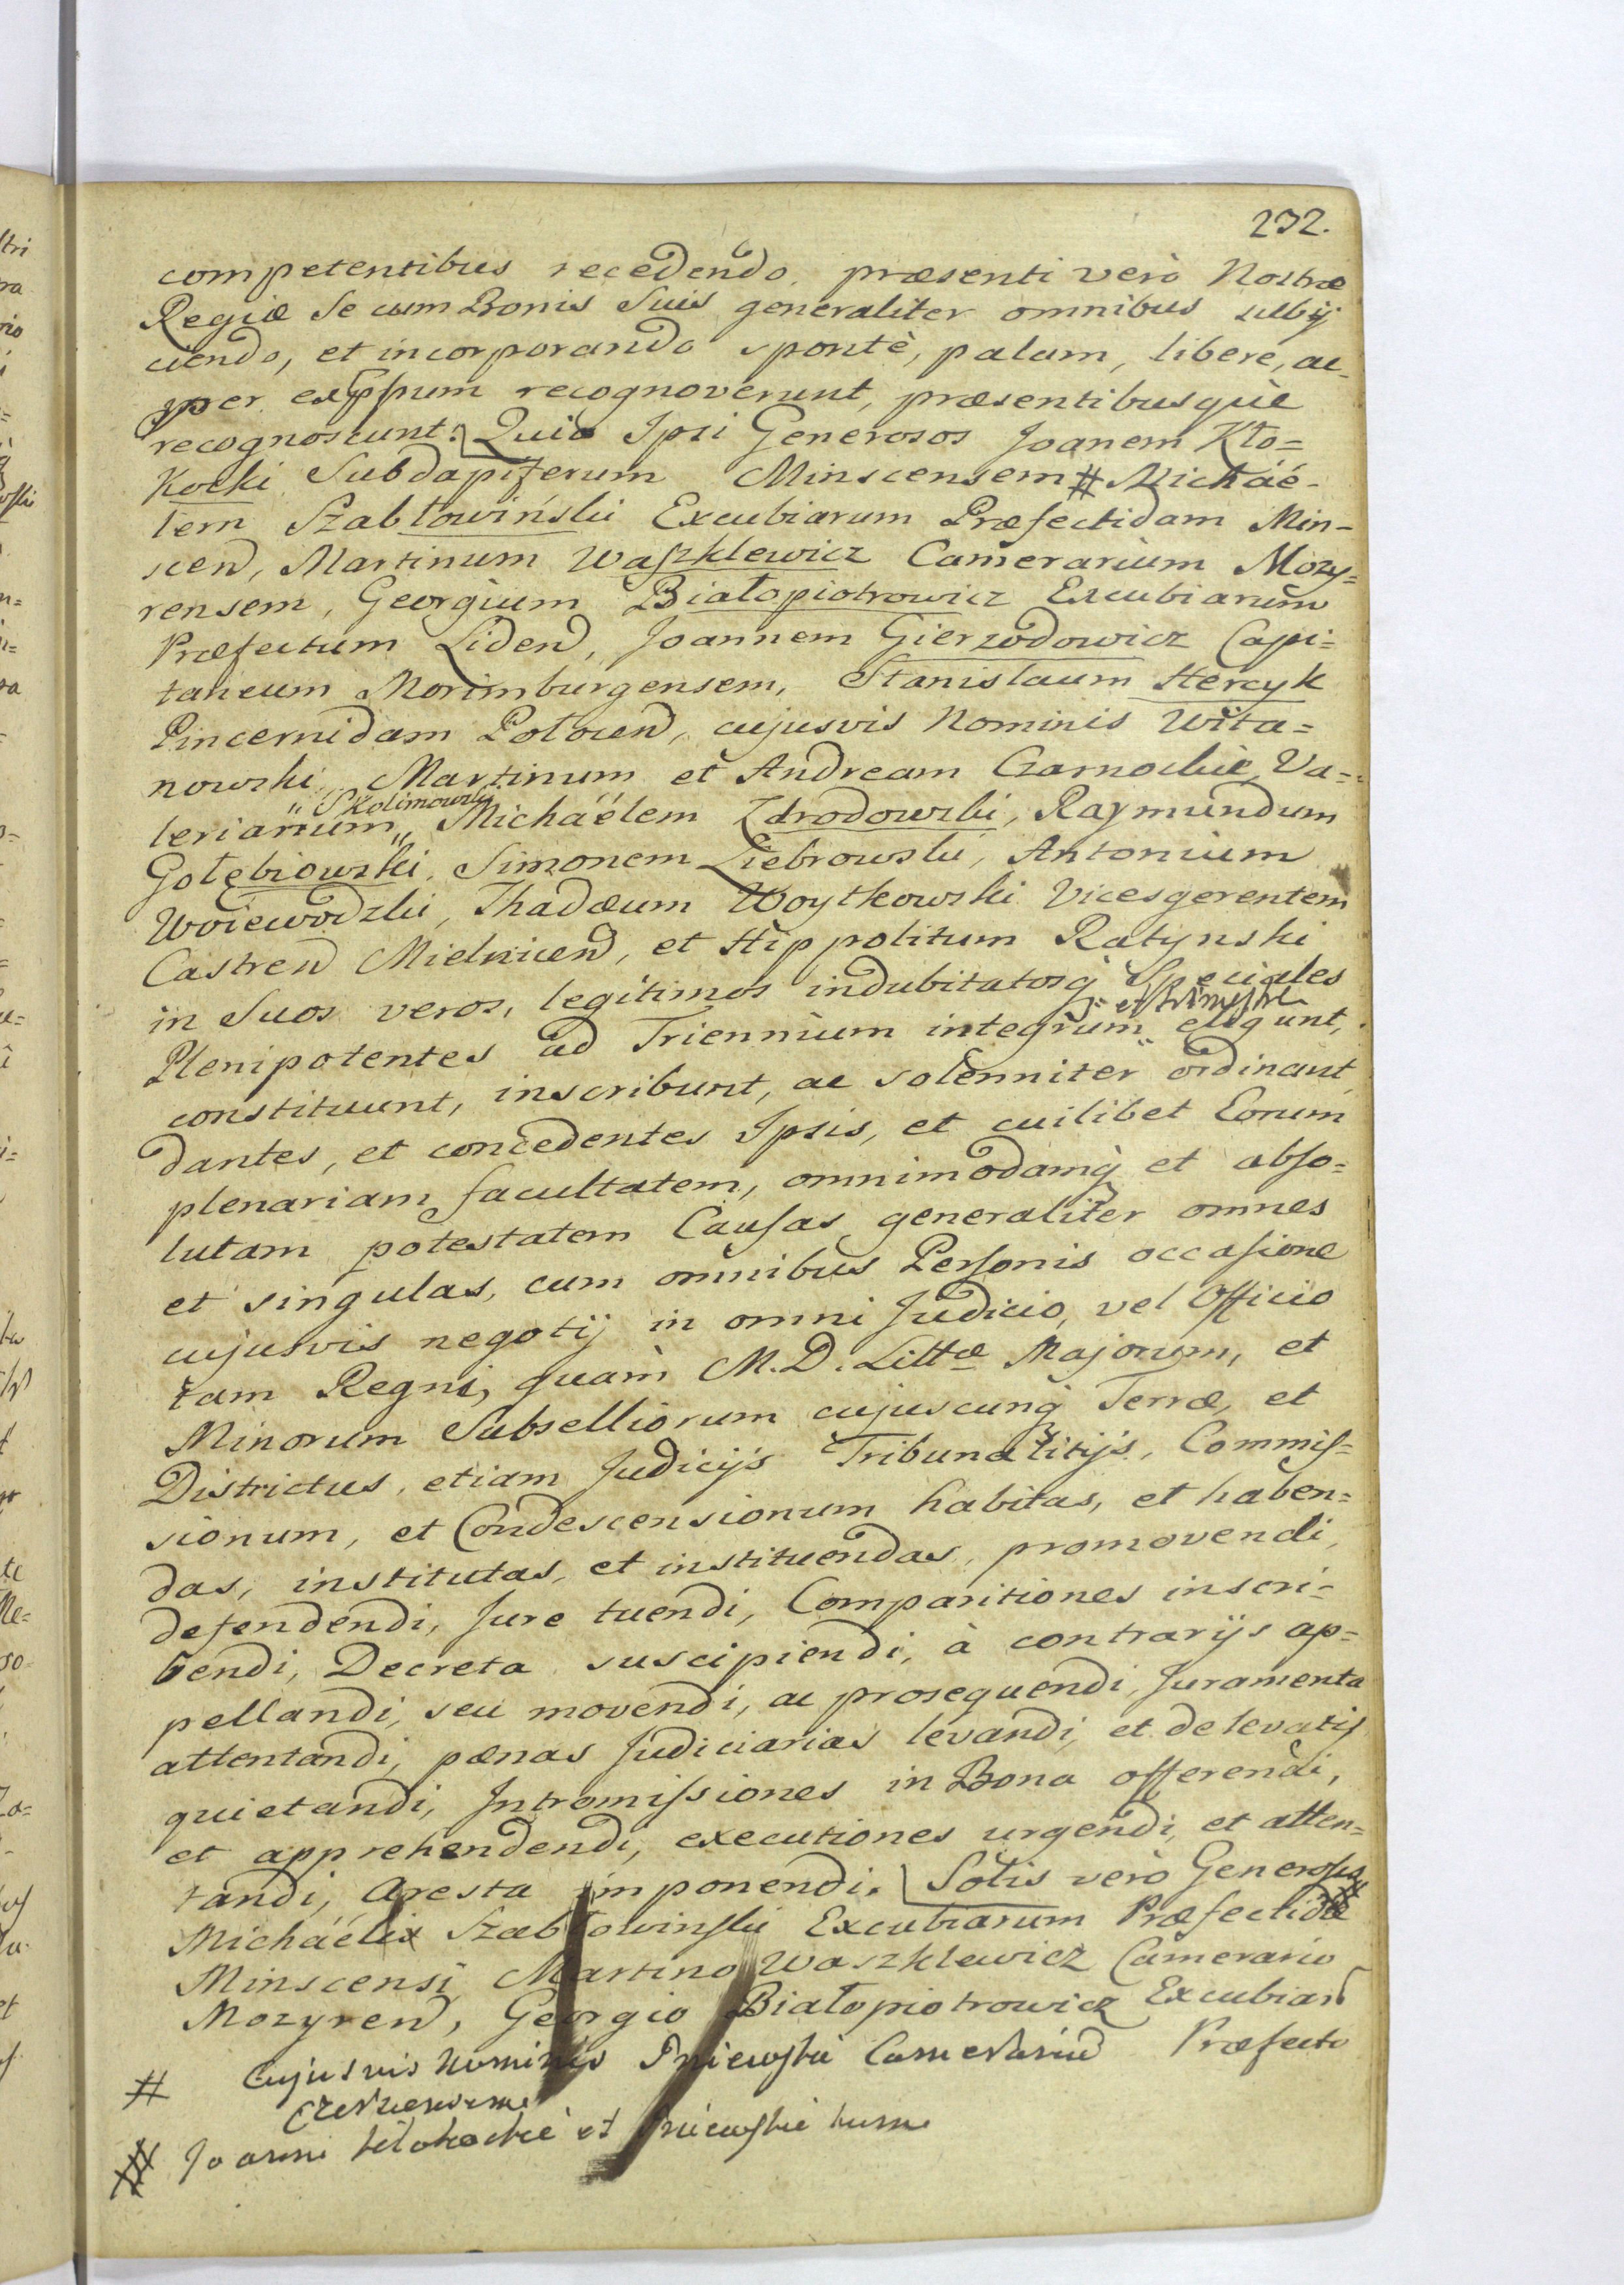 232.
competentibus recedendo, præsenti verò Nostræ
Regiæ Se cum Bonis Suis generaliter omnibus subij
ciendo, et incorporando spontè, palam, libere, ac
per expssum recognoverunt, præsentibusquè
recognoscunt: Quia Ipsi Generosos Joanem Kło=
Kocki Subdapiferum Minscensem # Michàé-
lem Szabłowiński Excubiarum Præfectidam Min-
scen, Martinum Waszklewicz Camerarium Mozy=
rensem, Georgium Białopiotrowicz Excubiarum
Præfectum Liden, Joannem Gierzodowicz Capi=
taneum Morimburgensem, Stanislaum Hercyk
Pincernidam Polocen, cujusvis Nominis Wita=
nowski, Martinum et Andream Czarnockie, Va=
" Skolimowski
lerianum,, Michàélem Zdrodowski, Raymundum
Gołębiowski, Simonem Ziebrowski, Antonium
Woiewodzki, Thadæum Woytkowski Vicesgerentem
Castren Mielnicen, et Hippolitum Ratynski
in Suos veros, legitimos indubitatosq Speciales
et trimestre
Plenipotentes ad Triennium integrum" eligunt,
constituunt, inscribunt, ac solenniter ordinant,
dantes, et concedentes Ipsis, et cuilibet Eorum
plenariam facultatem, omnimodamq et abso=
lutam potestatem Causas generaliter omnes
et singulas, cum omnibus Personis occasione
cujusvis negotij in omni Judicio, vel Officio
tam Regni, quam M. D. Littæ Majorum, et
Minorum Subselliorum cujuscunq Terræ, et
Districtus, etiam Judicijs Tribunalitijs, Commis=
sionum, et Condescensionum habitas, et haben=
das, institutas, et instituendas, promovendi,
defendendi, Jure tuendi, Comparitiones inscri=
bendi, Decreta suscipiendi, à contrarijs ap=
pellandi, seu movendi, ac prosequendi, Juramenta
attentandi, pænas Judiciarias levandi, et de levatis
quietandi, Intromissiones in Bona offerendi,
et apprehendendi, executiones urgendi, et atten=
tandi, Aresta imponendi. Solis verò Generosis #
Michàéli Szabłowinski Excubiarum Præfectidæ
Minscensi, Martino Waszklewicz Camerario
Mozyren, Georgio Białopiotrowicz Excubiar
Præfecto
# Cujusvis Nominis Pniewski Camerarium
# Joanni Kłokocki et Pniewski